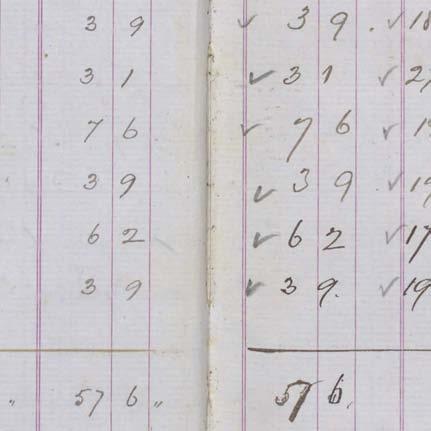 3 9
3 1
7 6
3 9
6 2
3 9
" 57 6 "
✓ 3 9 . ✓ 18
✓ 3 1 ✓ 2
✓ 7 6 ✓ 1
✓ 3 9 ✓ 19
✓ 6 2 ✓ 17
✓ 3 9. ✓ 19
57 6.